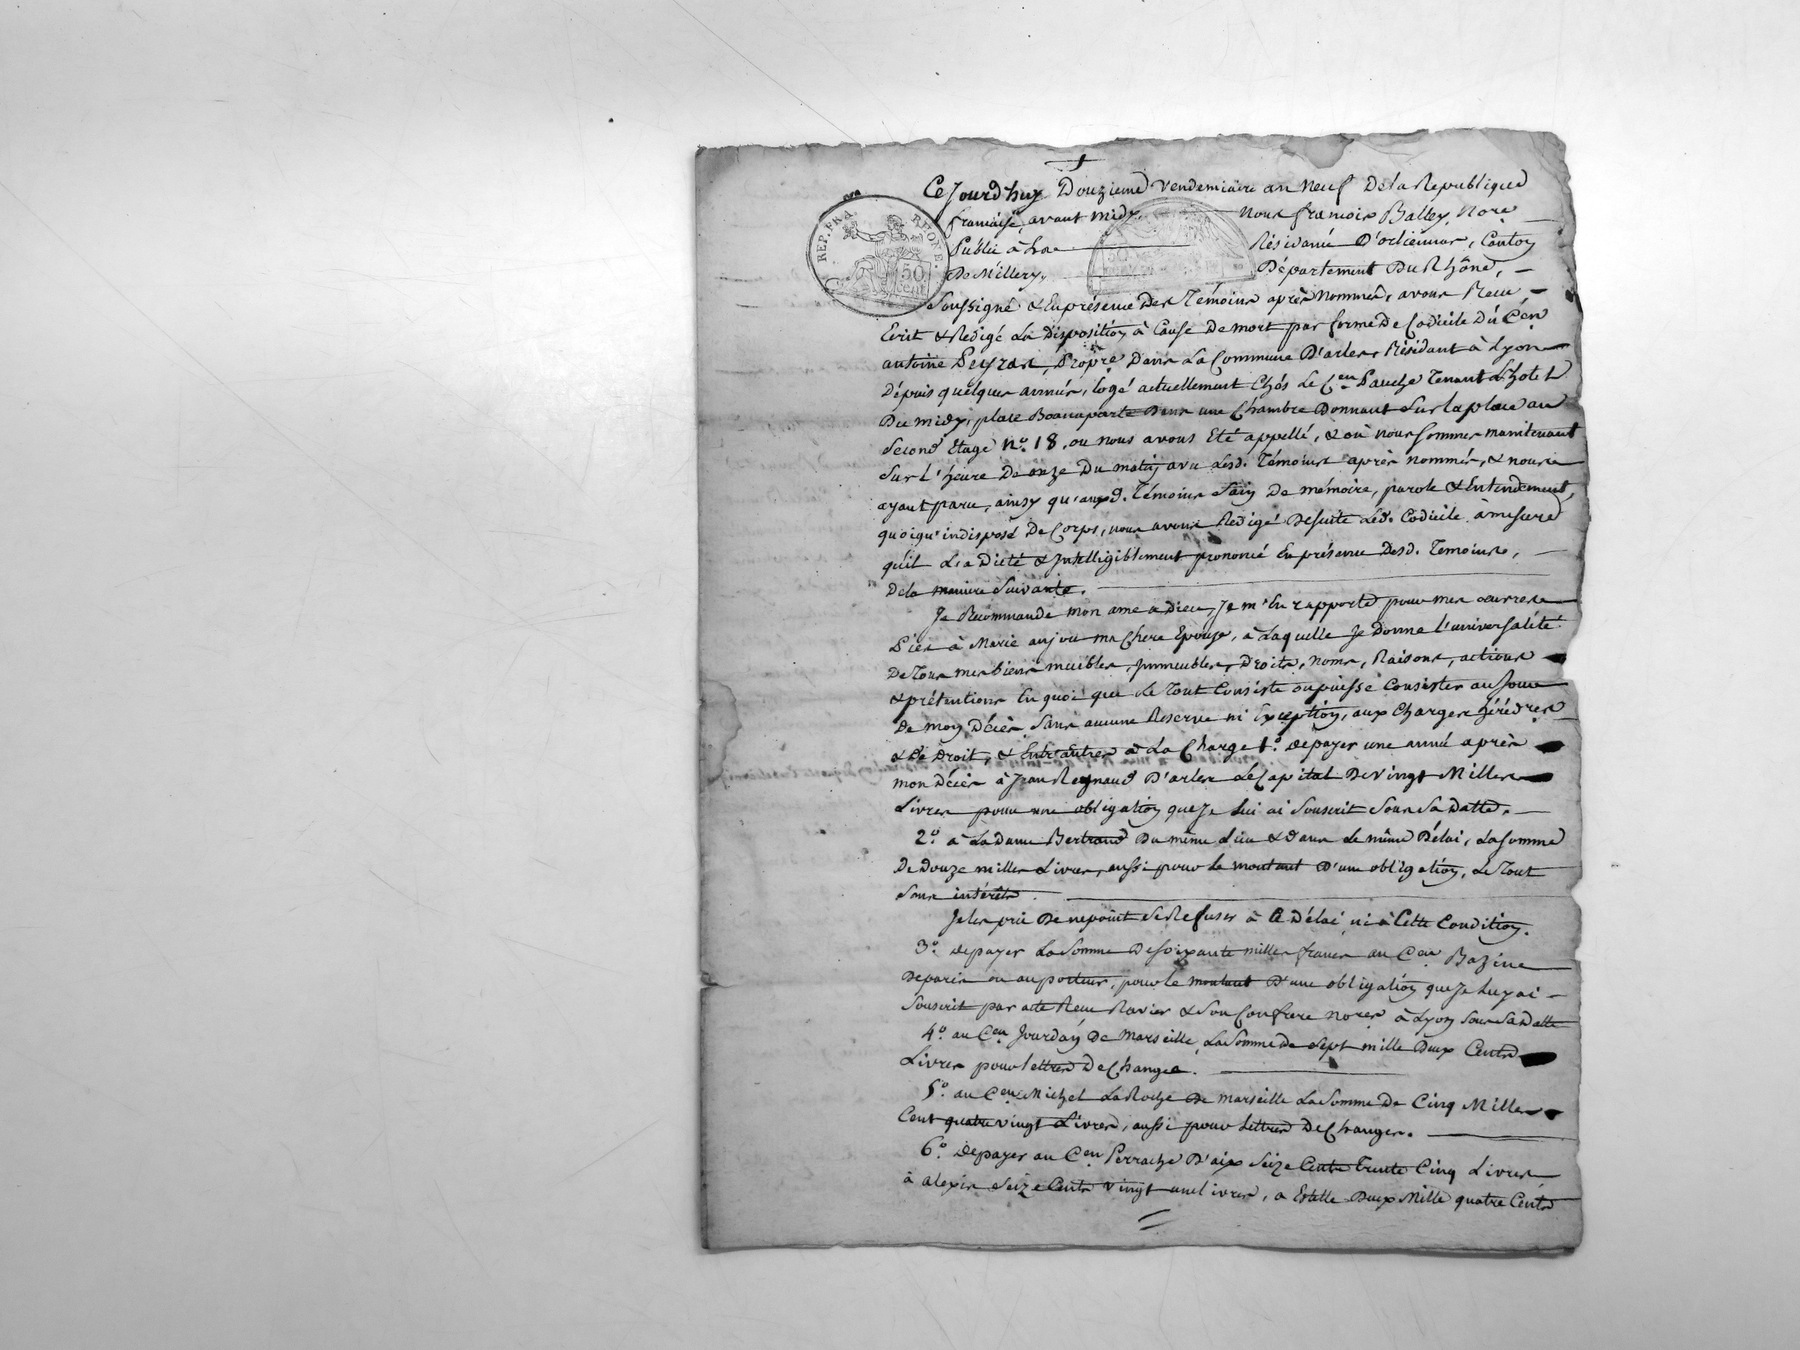 Ce Jourd'huy Douzieme Vendemiaire an neuf De la Republique
francaise, avant midy, Nous francois Balley, Nore
Public à la Résidance D'orliennas, Canton
De Millery, Département Du Rhône,
REP. FRA. RHONE.
50 cent
Soussigné & En présence Des Témoins après Nommés, avons Recu,
Ecrit & Rédigé La disposition à Cause De mort par forme De Codicile Du Cen
antoine Peyras, Propre. Dans La Commune D'arles, Résidant à Lyon
Depuis quelques années, logé actuellement Chés Le Cen Pauche Tenant L'hotel
Du midy, place Bonnaparte Dans une Chambre Donnant Sur la place au
Second Etage n.o 18, ou nous avons Eté appellé, & où nous sommes maintenant
Sur L'heure De onze Du matin, avec Lesd. Témoins après nommés, & nous
ayant paru, ainsy qu'auxd. Témoins Sain De mémoire, parole & Entendement,
quoiqu'indisposé De Corps, nous avons Redigé De suite Led. Codicile a mesure
qu'il L'a Dicté & Intelligiblement prononcé En présence Desd. Temoins,
De la maniere Suivante.
Je Recommande mon ame a dieu, Je m'En rapporte pour mes œuvres
Pies à Marie anjou ma Chere Epouse, à Laquelle Je Donne L'universalité
De Tous mes biens meubles, Immeubles, Droits, noms, Raisons, actions
& prétentions En quoi que Le Tout Consiste ou puisse Consister au Jour
De mon Décès Sans aucune Reserve ni Exception, aux Charges hérédres
& De Droit, & Entr'autres à La Charge 1.o de payer une année après
mon Décès à Jean Reynaud D'arles Le Capital De vingt Milles
Livres pour une obligation que Je Lui ai Souscrit Sous Sa Datte.
2.o à La dame Bertrand Du même Lieu & dans Le même Délai, La somme
De Douze milles Livres, aussi pour Le montant D'une obligation, Le Tout
Sans intérêts.
Je les prie De ne point Se Refuser à Ce Délai, ni à Cette Condition.
3.o de payer La Somme De soixante milles francs au Cen Bazine
De paris ou au porteur, pour Le montant D'une obligation que Je Luy ai
Souscrit par acte Recu Ravier & Son Confrere nores à Lyon Sous Sa Datte
4.o au Cen Jourdan De Marseille, La Somme De Sept mille Deux Cents
Livres pour lettres De Change.
5.o au Cen Michel LaRoche De marseille La Somme De Cinq Milles
Cent quatre vingt Livres, aussi pour Lettres De Changes.
6.o de payer au Cen Perrache D'aix Seize Cents Trente Cinq Livres
à alexis Seize Cents vingt une livres, a Estelle Deux Mille quatre Cents